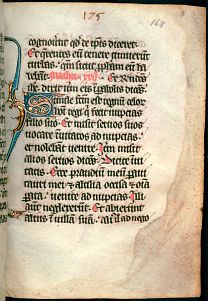 175
168
cognouit qd de ipis diceret.
Et querentes eu tenere timuerut
turbas. qm sicut pphetam eu ha
bebat. Et respondes
ihc dixit iteru eis i parabolis dices
Simile fcm est regnu celor
hoi regi q fecit nuptias
filio suo. Et misit seruos suos
uocare inuitatos ad nuptias
et nolebant uenire. Item misit
alios seruos dices. Dicite inui
tatis. Ecce prandiu meu paui
tauri mei et altilia occisa et oia
parata. uenite ad nuptias. Illi
aute neglexerut. Et abierunt
alius i uilla sua. ad nego